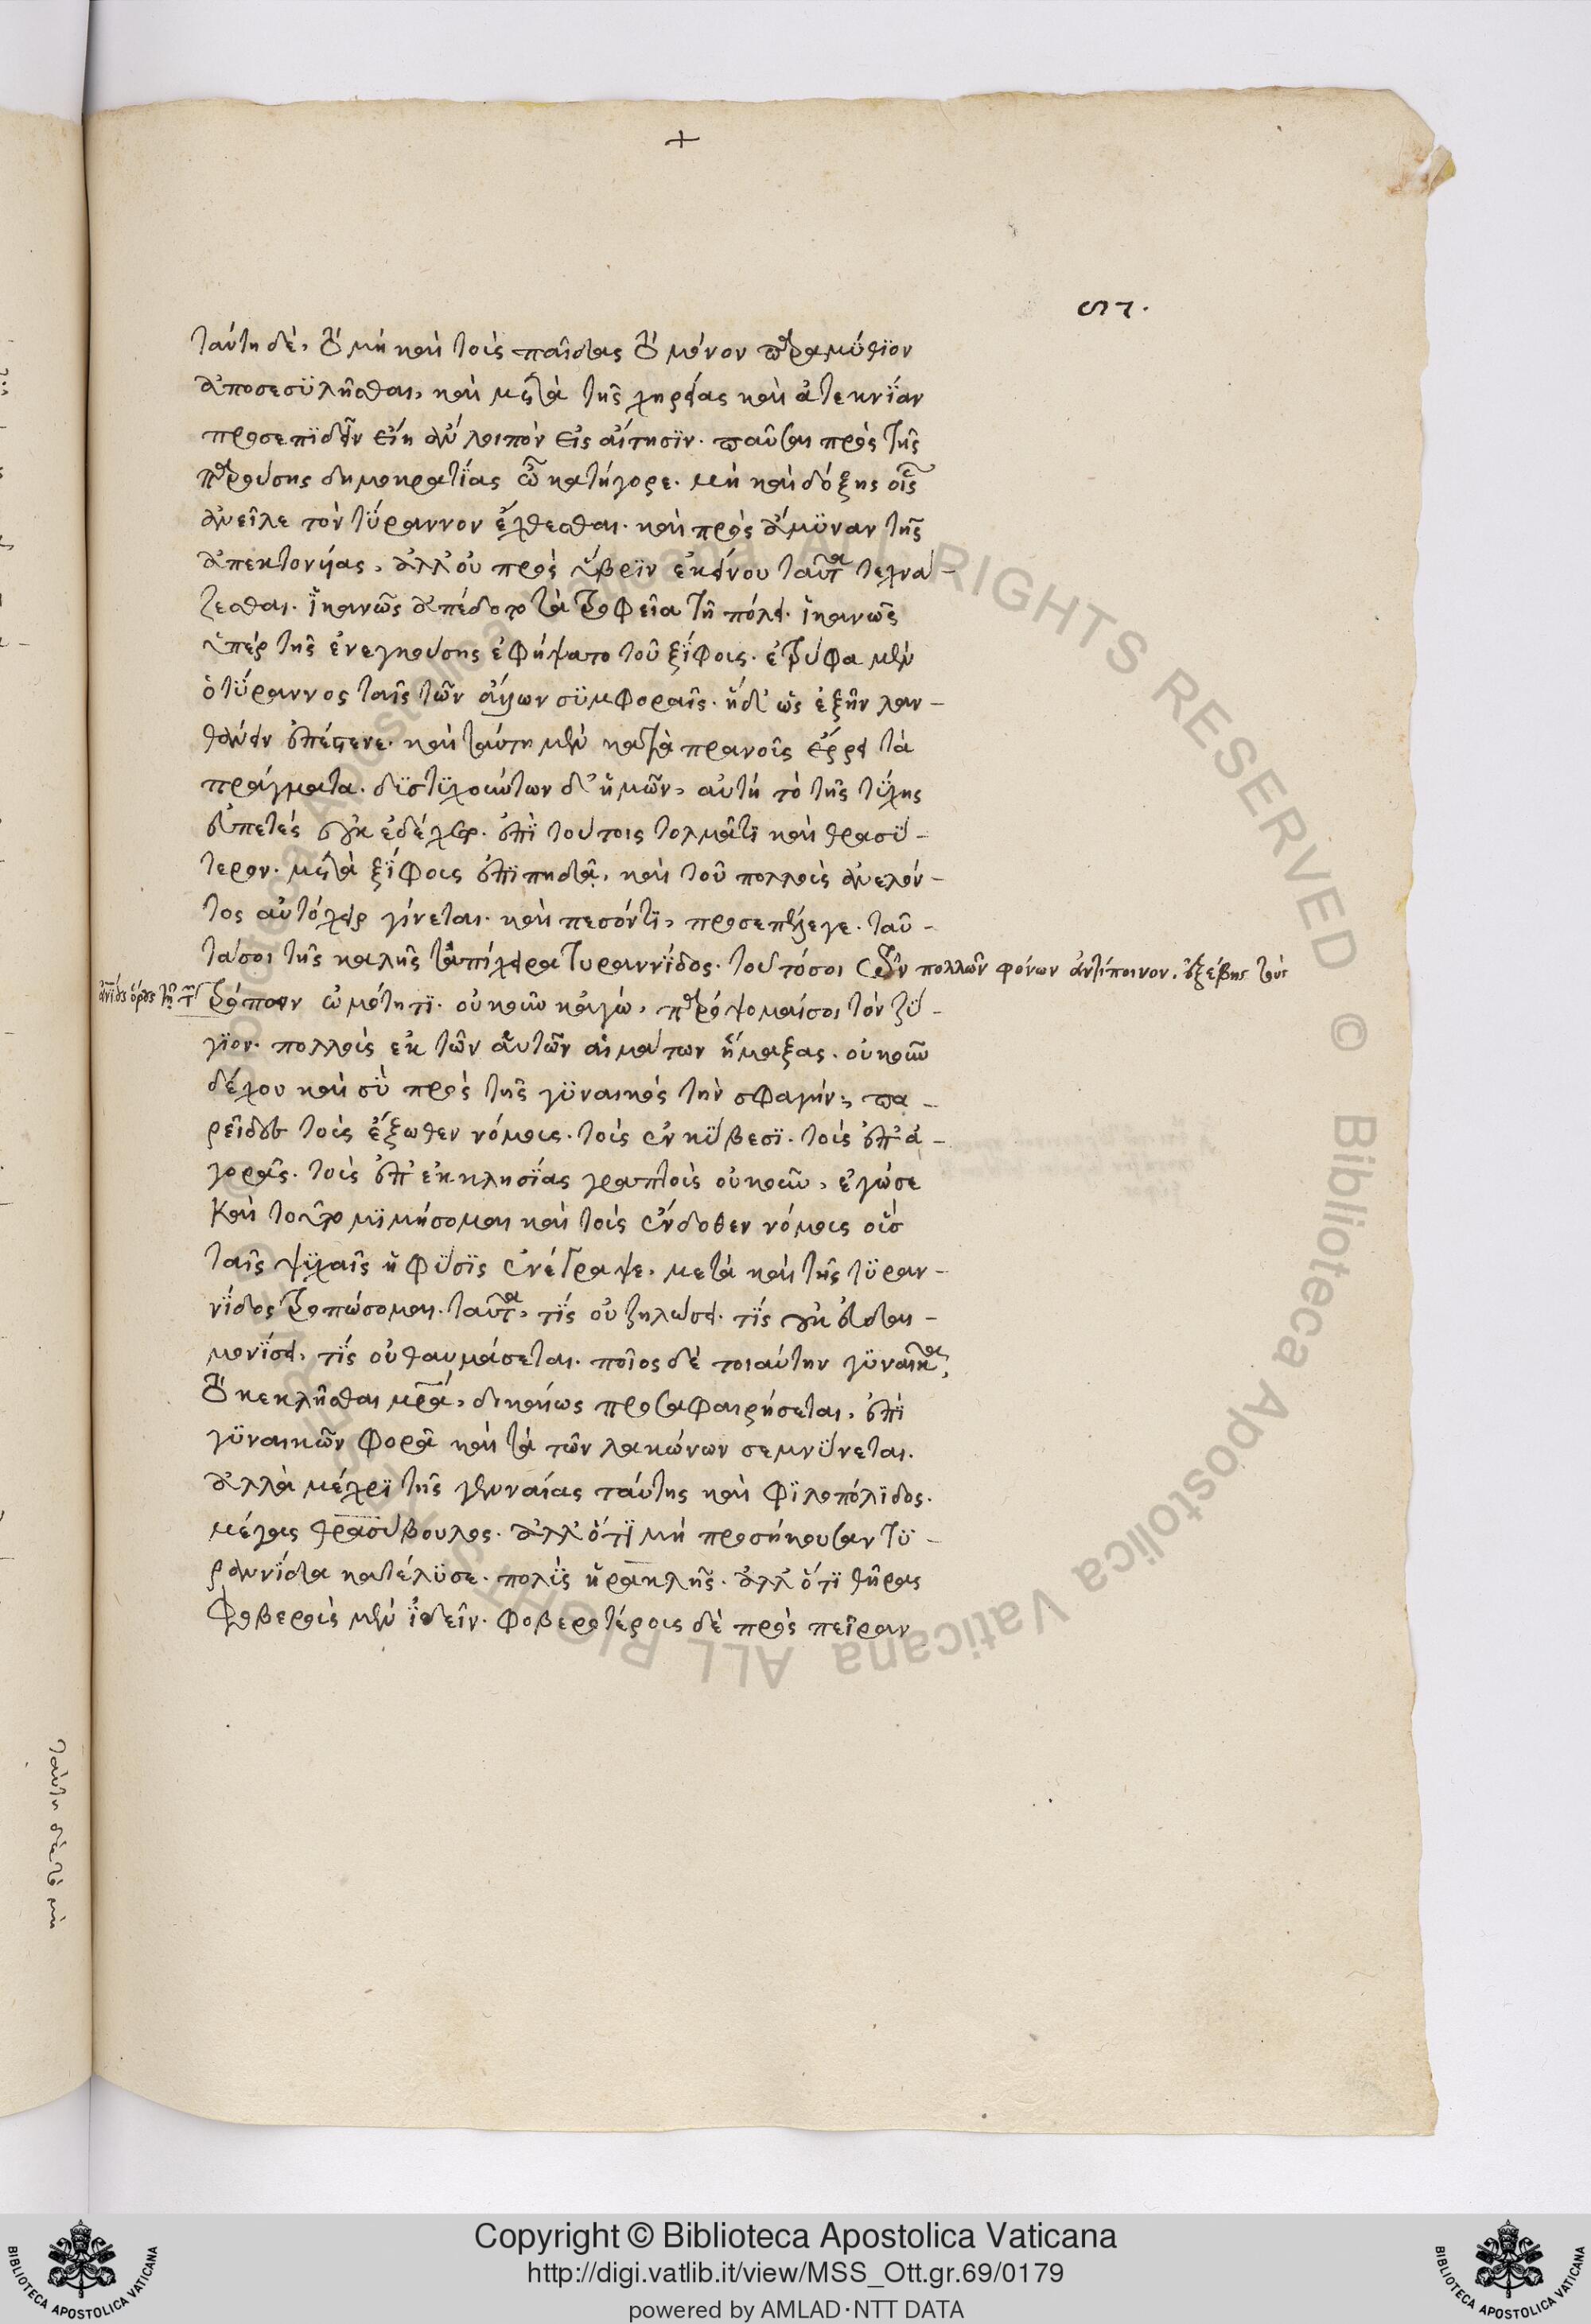 +
ϛζ.
ταύτη δὲ, τὸ μὴ καὶ τοὺς παῖδας τὸ μόνον παραμύθϊον
ἀποσεσϋλῆσθαι, καὶ μετὰ τῆς χηρείας καὶ ἀτεκνΐαν
προσεπϊδεῖν εἴη ἂν λοιπὸν εἰς αἴτησϊν. παῦσαι πρὸς τῆς
παρούσης δημοκρατΐας ὦ κατήγορε. μὴ καὶ δόξης οἷς
ἀνεῖλε τὸν τΰραννον ἔχθεσθαι. καὶ πρὸς ἄμϋναν τῆς
ἀπεκτονυίας, ἀλλ' οὐ πρὸς ὕβρϊν ἐκείνου ταῦτα τεχνά-
ζεσθαι. ἱκανῶς ἀπέδοτο τὰ τροφεῖα τῇ πόλει. ἱκανῶς
ὑπὲρ τῆς ἐνεγκούσης ἐφήψατο τοῦ ξΐφους. ἐτρύφα μὲν
ὁ τΰραννος ταῖς τῶν ἄλλων σϋμφοραῖς. ἡ δ' ὡς ἐξῆν λαν-
θάνειν ἐπέστενε. καὶ ταύτη μὲν κατὰ πρανοῦς ἔρρει τὰ
πράγματα. δϊστϋχούντων δ' ἡμῶν, αὐτὴ τὸ τῆς τΰχης
εὐπετὲς οὐκ ἐδέχετο. ἐπὶ τούτοις τολμᾶτϊ καὶ θρασΰ-
τερον. μετὰ ξΐφους ἐπϊπηδᾷ, καὶ τοῦ πολλοὺς ἀνελόν-
τος αὐτόχειρ γίνεται. καὶ πεσόντϊ, προσεπέλεγε. ταῦ-
τά σοι τῆς καλῆς τἀπίχειρα τυραννίδος. τοῦτό σοι τῶν πολλῶν φόνων ἀντίποινον. ἐξέβης τοὺς
ἀνΐδος ὅρους τῇ τοῦ τρόπου ὠμότητϊ. οὐκοῦν κἀγώ, παρόψομαί σοι τὸν ζΰ-
γϊον. πολλοὺς ἐκ τῶν αὑτῶν αἱμάτων ἥμαξας. οὐκοῦν
δέχου καὶ σὺ πρὸς τῆς γϋναικὸς τὴν σφαγήν, πα-
ρεῖδες τοὺς ἔξωθεν νόμους. τοὺς ἐν κΰβεσϊ. τοὺς ἐπ' ἀ-
γορᾶς. τοὺς ἐπ' ἐκκλησΐας γραπτοὺς οὐκοῦν, ἐγώ σε
καὶ τοῦτο μϊμήσομαι καὶ τοὺς ἔνδοθεν νόμους οὓς
ταῖς ψϋχαῖς ἡ φΰσϊς ἐνέγραψε, μετὰ καὶ τῆς τϋραν-
νΐδος τροπώσομαι. ταῦτα, τΐς οὐ ζηλώσει. τΐς οὐκ εὐδαι-
μονΐσει, τΐς οὐ θαυμάσεται. ποῖος δὲ τοιαύτην γϋναῖκα,
τὸ κεκλῆσθαι μητέρα, δικαίως προσαφαιρήσεται, ἐπὶ
γϋναικῶν φορᾷ καὶ τὰ τῶν λακώνων σεμνΰνεται.
ἀλλὰ μέχρϊ τῆς γενναίας ταύτης καὶ φϊλοπόλϊδος.
μέγας θρασύβουλος. ἀλλ' ὅτϊ μὴ προσήκουσαν τϋ-
ραννΐδα κατέλϋσε. πολὺς ἡρακλῆς. ἀλλ' ὅτϊ θῆρας
φοβεροὺς μὲν ἰδεῖν. φοβερωτέρους δὲ πρὸς πεῖραν
ταύτη δὲ τὸ μὴ
Copyright © Biblioteca Apostolica Vaticana
http://digi.vatlib.it/view/MSS_Ott.gr.69/0179
powered by AMLAD·NTT DATA
BIBLIOTECA APOSTOLICA VATICANA
BIBLIOTECA APOSTOLICA VATICANA
© Biblioteca Apostolica Vaticana ALL RIGHTS RESERVED © Biblioteca Apostolica Vaticana ALL RIGHTS RESERVED